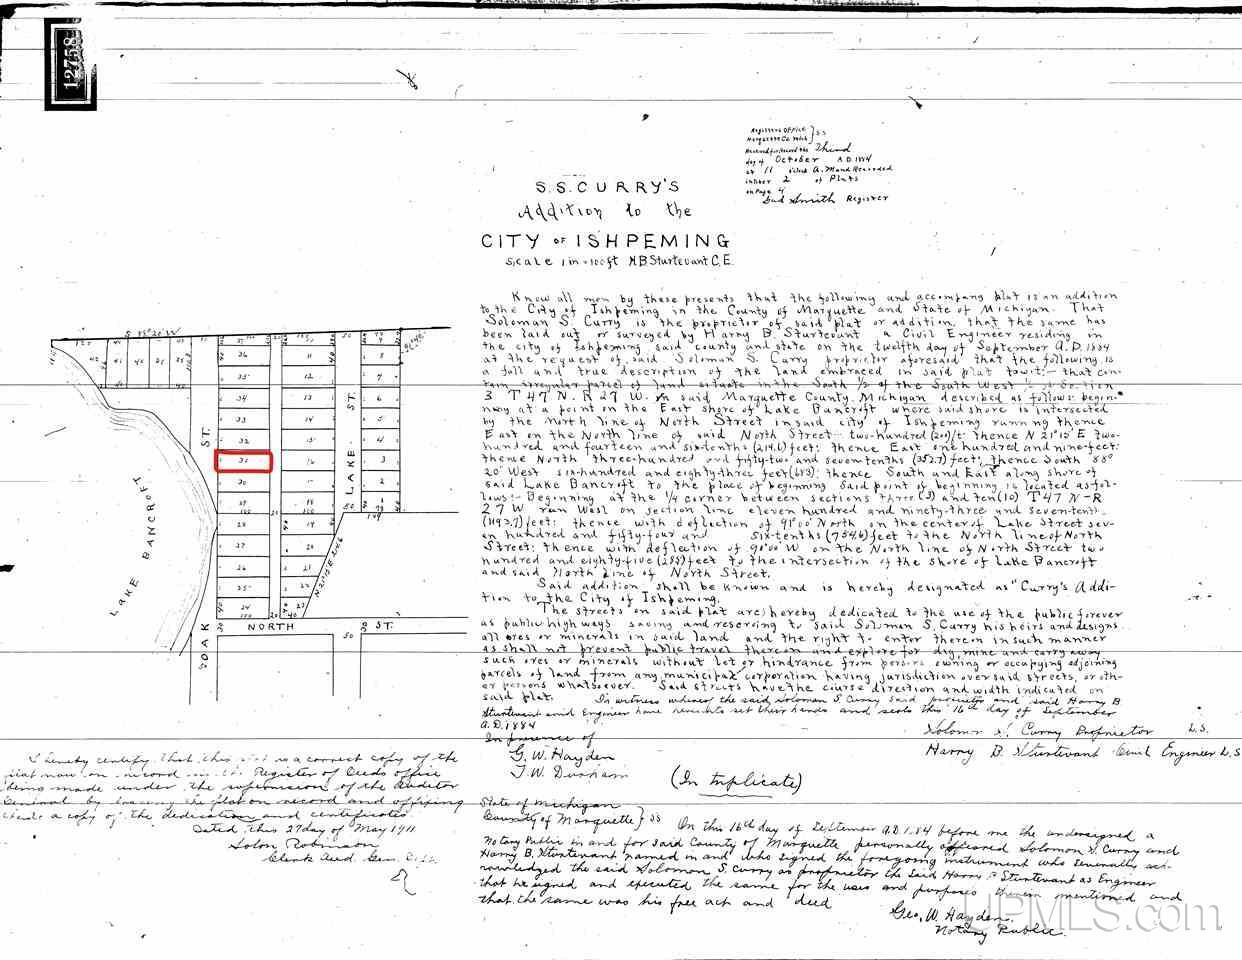 12758
Registers Office } SS
Marquette Co. Mich
Received for Record the Third
day of October A.D. 1884
at 11 o'clock A.M and Recorded
in Liber 2 of Plats
on Page 4
Gad Smith Register
S.S. CURRY'S
Addition to the
CITY OF ISHPEMING
Scale 1 in = 100 ft H B Sturtevant C.E.
Know all men by these presents that the following and accompang plat is an addition
to the City of Ishpeming in the County of Marquette and State of Michigan. That
Soloman S. Curry is the proprietor of said plat or addition, that the same has
been laid out or surveyed by Harry B Sturtevant a Civil Engineer residing in
the city of Ishpeming said county and state on the twelfth day of September A.D. 1884
at the request of said Soloman S. Curry proprietor aforesaid that the following is
a full and true description of the land embraced in said plat towit:- that cer-
tain irregular parcel of land situate in the South 1/2 of the South West 1/4 of Section
3 T 47 N. R 27 W. in said Marquette County. Michigan described as follows: begin-
ning at a point on the East shore of Lake Bancroft where said shore is intersected
by the North line of North Street in said city of Ishpeming running thence
East on the North line of said North Street two-hundred (200) ft. thence N 21°15' E two-
hundred and fourteen and six-tenths (214.6) feet; thence East one hundred and nine feet;
thence North three-hundred and fifty-two and seven-tenths (352.7) feet; thence South 88°
20' West six-hundred and eighty-three feet (683); thence South and East along shore of
said Lake Bancroft to the place of beginning Said point of beginning is located as fol-
lows:- Beginning at the 1/4 corner between sections three (3) and ten (10) T 47 N-R
27 W run West on section line eleven hundred and ninety-three and seven-tenths
(1193.7) feet; thence with deflection of 91°00' North on the center of Lake Street sev-
en hundred and fifty-four and six-tenths (754.6) feet to the North line of North
Street; thence with deflection of 90°00' W on the North line of North Street two
hundred and eighty-five (285) feet to the intersection of the shore of Lake Bancroft
and said North line of North Street.
Said addition shall be known and is hereby designated as "Curry's Addi-
tion to the City of Ishpeming.
The streets on said plat are hereby dedicated to the use of the public forever
as public highways saving and reserving to said Soloman S. Curry his heirs and assigns
all ores or minerals in said land and the right to enter thereon in such manner
as shall not prevent public travel thereon and explore for dig, mine and carry away
such ores or minerals without let or hindrance from persons owning or occupying adjoining
parcels of land from any municipal corporation having jurisdiction over said streets, or oth-
er persons whatsoever. Said streets have the course direction and width indicated on
said plat. In witness whereof the said Soloman S. Curry said proprietor and said Harry B
Sturtevant said Engineer have hereunto set their hands and seals this 16th day of September
A.D. 1884
In presence of
G. W. Hayden
(In triplicate)
Soloman S. Curry Proprietor L.S.
Harry B. Sturtevant Civil Engineer L.S
State of Michigan
County of Marquette } SS On this 16th day of September A.D. 1884 before me the undersigned a
Notary Public in and for said County of Marquette personally appeared Soloman S. Curry and
Harry B. Sturtevant named in and who signed the foregoing instrument who severally ack-
nowledged the said Soloman S. Curry as proprietor the said Harry B Sturtevant as Engineer
that he signed and executed the same for the uses and purposes therein mentioned and
that the same was his free act and deed
Geo. W. Hayden.
Notary Public.
I hereby certify that this plat is a correct copy of the
plat now on record in the Register of Deeds office
being made under the supervision of the Auditor
General by tracing the plat on record and affixing
thereto a copy of the dedication and certificates.
Dated this 27 day of May 1911
Solon Robinson
S 88° 20' W
LAKE BANCROFT
OAK ST.
LAKE ST.
NORTH ST.
N 21° 15' E 214.6
42 41 40 39 38
36 11 8
35 12 7
34 13 6
33 14 5
32 15 4
31 16 3
30 17 2
29 18
28 19
27 20
26 21
25 22
24 23
109
50
UPMLS.com